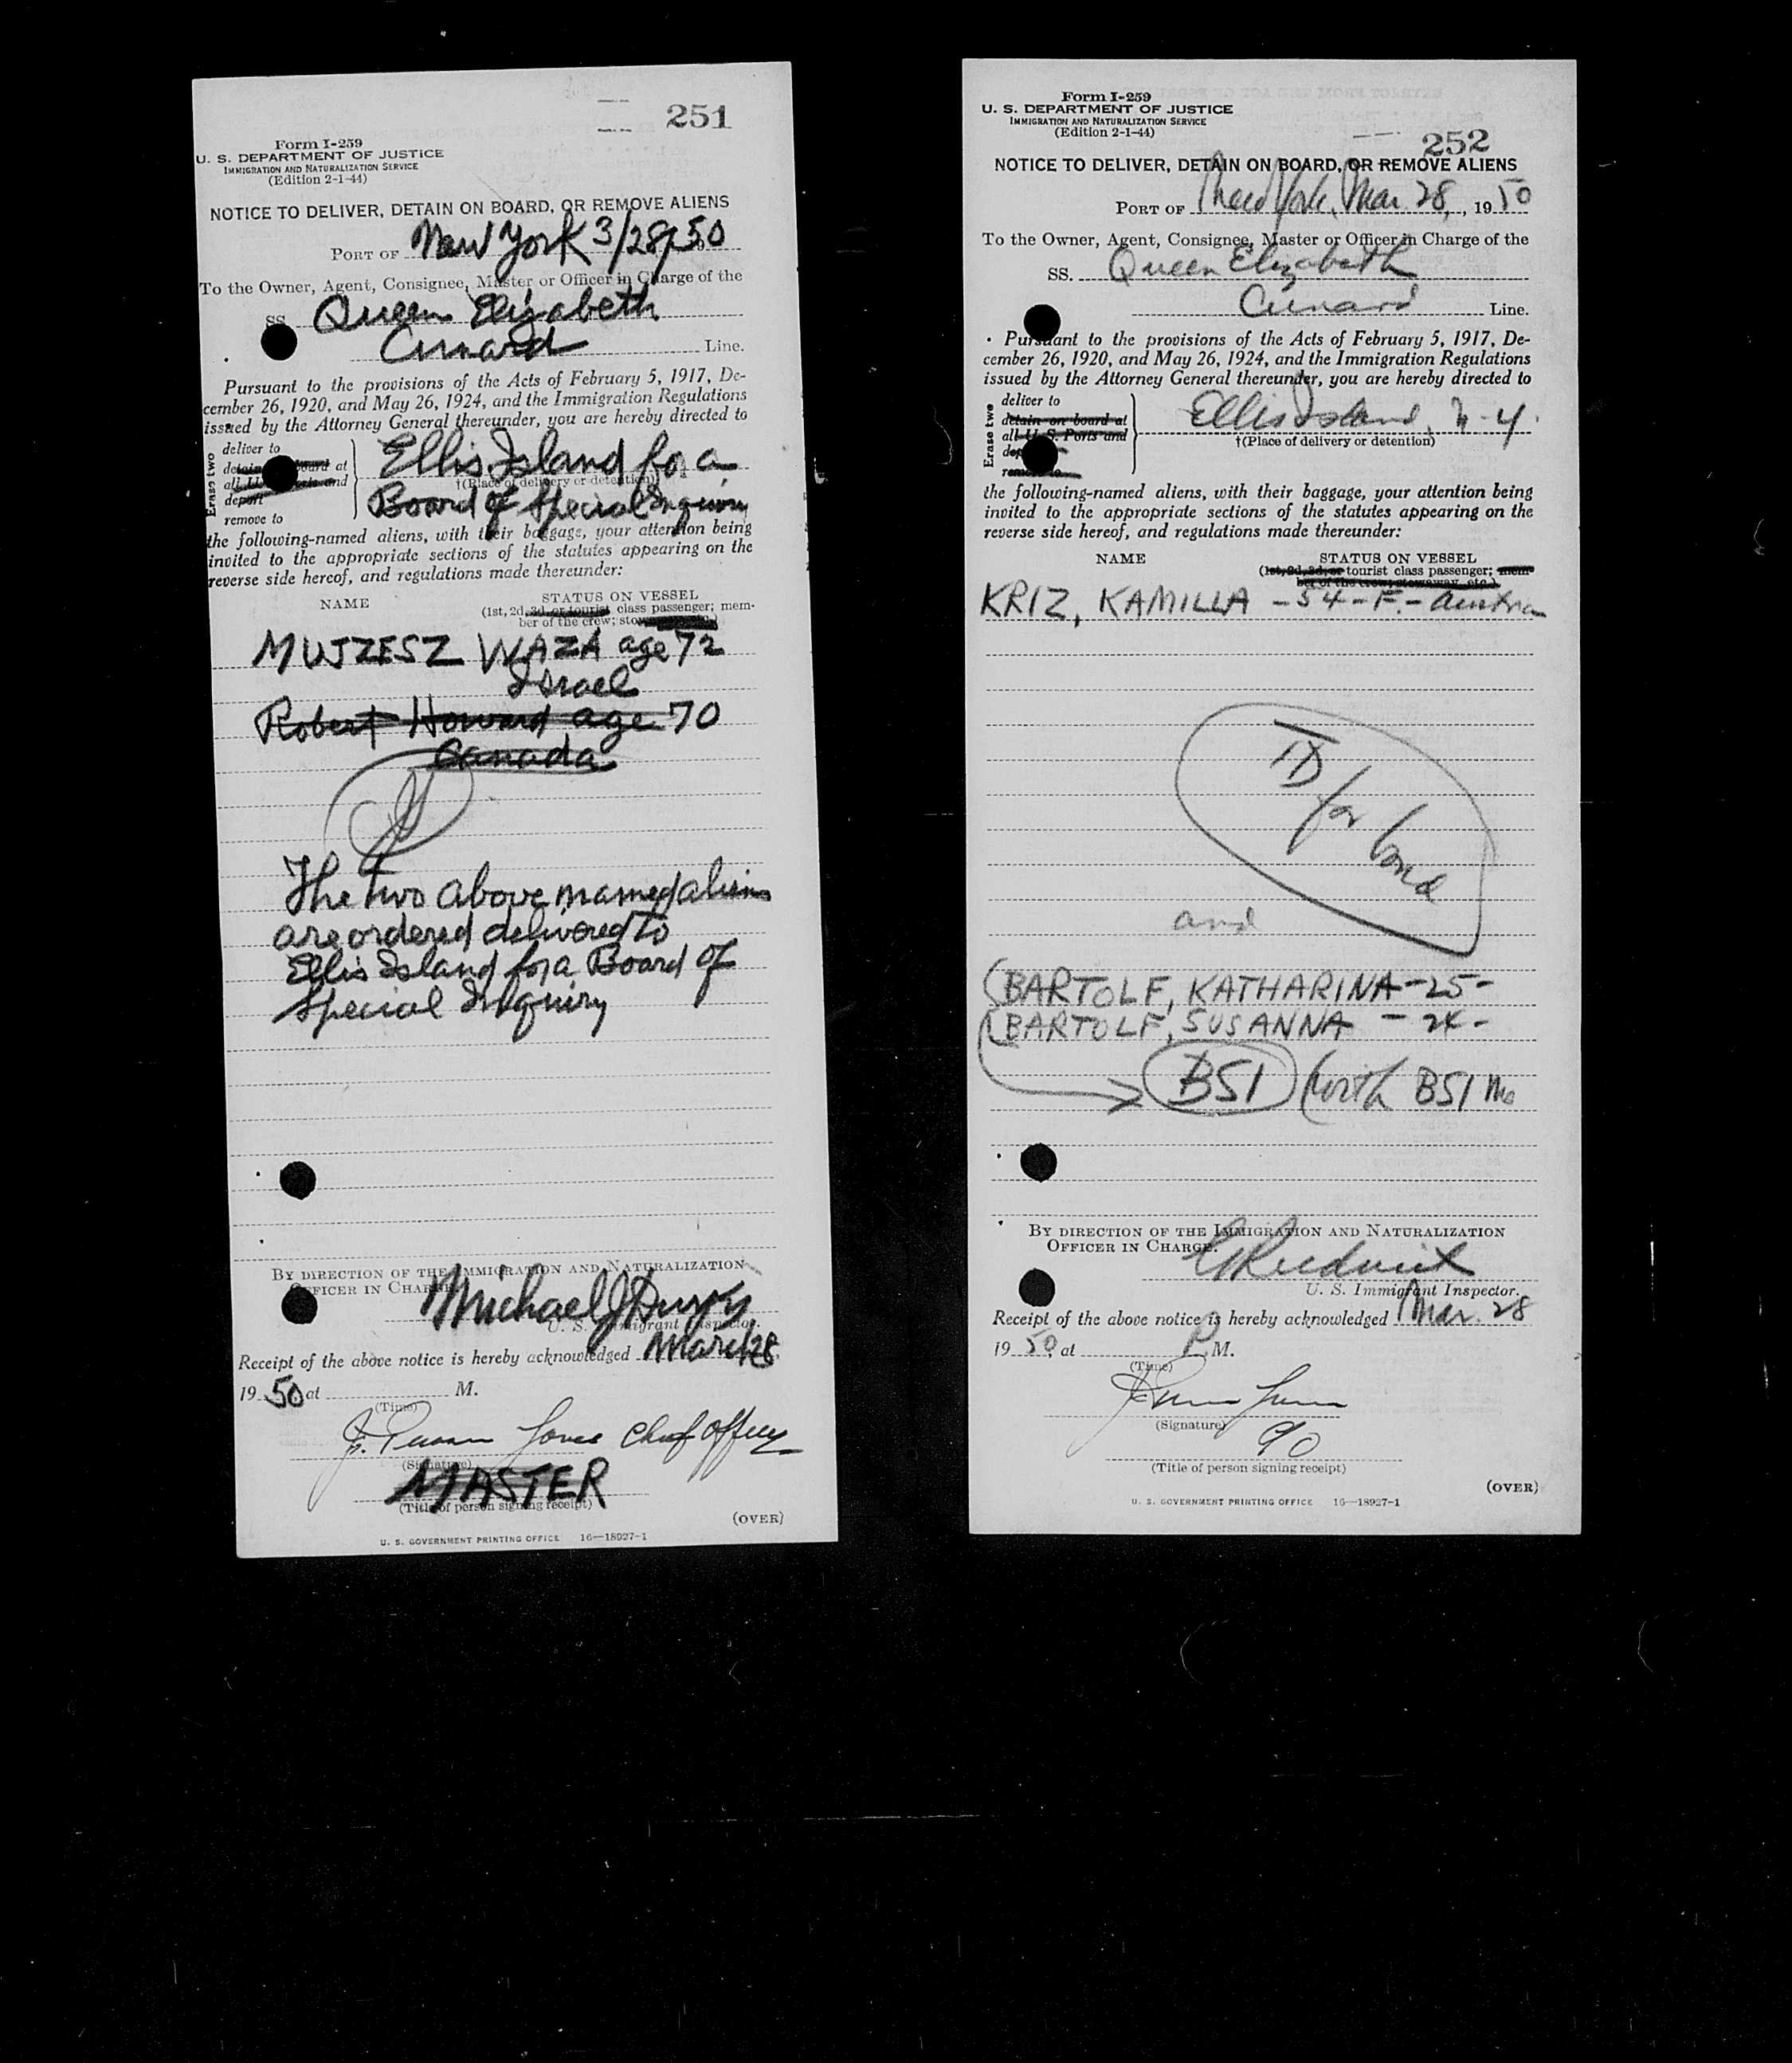 251
Form I-259
U. S. DEPARTMENT OF JUSTICE
IMMIGRATION AND NATURALIZATION SERVICE
(Edition 2-1-44)
NOTICE TO DELIVER, DETAIN ON BOARD, OR REMOVE ALIENS
PORT OF New York 3/28, 50
To the Owner, Agent, Consignee, Master or Officer in Charge of the
SS. Queen Elizabeth
Cunard Line.
Pursuant to the provisions of the Acts of February 5, 1917, De-
cember 26, 1920, and May 26, 1924, and the Immigration Regulations
issued by the Attorney General thereunder, you are hereby directed to
Erase two
deliver to
detain on board at
all U. S. Ports and
deport
remove to
Ellis Island for a
†(Place of delivery or detention)
Board of Special Inquiry
the following-named aliens, with their baggage, your attention being
invited to the appropriate sections of the statutes appearing on the
reverse side hereof, and regulations made thereunder:
NAME STATUS ON VESSEL
(1st, 2d, 3d, or tourist class passenger; mem-
ber of the crew;
MUJZESZ WAZA age 72
Israel
Robert Howard age 70
Canada
The two above named aliens
are ordered delivered to
Ellis Island for a Board of
Special Inquiry
BY DIRECTION OF THE IMMIGRATION AND NATURALIZATION
OFFICER IN CHARGE.
Michael J
U. S. Immigrant Inspector.
Receipt of the above notice is hereby acknowledged March 28,
19 50 at M.
(Time)
J. Jones Chief Officer
(Signature)
MASTER
(Title of person signing receipt)
(OVER)
U. S. GOVERNMENT PRINTING OFFICE 16—18927-1
Form I-259
U. S. DEPARTMENT OF JUSTICE
IMMIGRATION AND NATURALIZATION SERVICE
(Edition 2-1-44)
252
NOTICE TO DELIVER, DETAIN ON BOARD, OR REMOVE ALIENS
PORT OF New York, Mar 28, , 19 50
To the Owner, Agent, Consignee, Master or Officer in Charge of the
SS. Queen Elizabeth
Cunard Line.
Pursuant to the provisions of the Acts of February 5, 1917, De-
cember 26, 1920, and May 26, 1924, and the Immigration Regulations
issued by the Attorney General thereunder, you are hereby directed to
Erase two
deliver to
detain on board at
all U. S. Ports and
remove to
Ellis Island, N.Y.
†(Place of delivery or detention)
the following-named aliens, with their baggage, your attention being
invited to the appropriate sections of the statutes appearing on the
reverse side hereof, and regulations made thereunder:
NAME STATUS ON VESSEL
(1st, 2d, 3d, or tourist class passenger; mem-
ber of the crew; stowaway, etc.)
KRIZ, KAMILLA - 54 - F. - Austrian
TD
for bond
and
BARTOLF, KATHARINA - 25 -
BARTOLF, SUSANNA - 24 -
BSI (with BSI
BY DIRECTION OF THE IMMIGRATION AND NATURALIZATION
OFFICER IN CHARGE.
U. S. Immigrant Inspector.
Receipt of the above notice is hereby acknowledged Mar. 28
19 50, at P. M.
(Time)
(Signature)
(Title of person signing receipt)
(OVER)
U. S. GOVERNMENT PRINTING OFFICE 16—18927-1